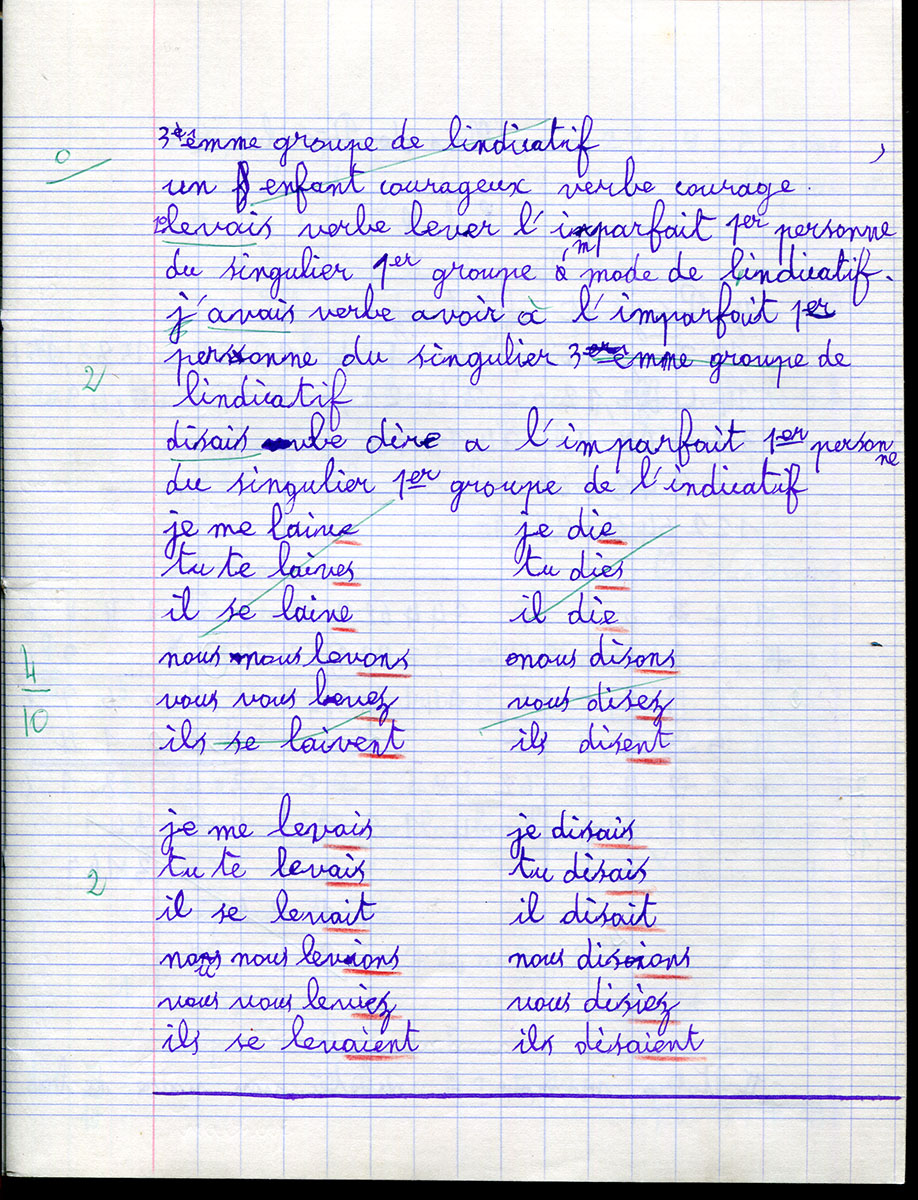 3èmme groupe de lindicatif
0
un enfant courageux verbe courage.
levais verbe lever l'imparfait 1er personne
du singulier 1er groupe à mode de lindicatif.
j'avais verbe avoir à l'imparfait 1er
personne du singulier 3èmme groupe de
2
lindicatif
disais verbe dire a l'imparfait 1er personne
du singulier 1er groupe de l'indicatif
je me laive je die
tu te laives tu dies
il se laive il die
nous nous levons nous disons
4/10
vous vous levez vous disez
ils se laivent ils disent
je me levais je disais
tu te levais tu disais
2
il se levait il disait
nous nous levions nous disions
vous vous leviez vous disiez
ils se levaient ils disaient